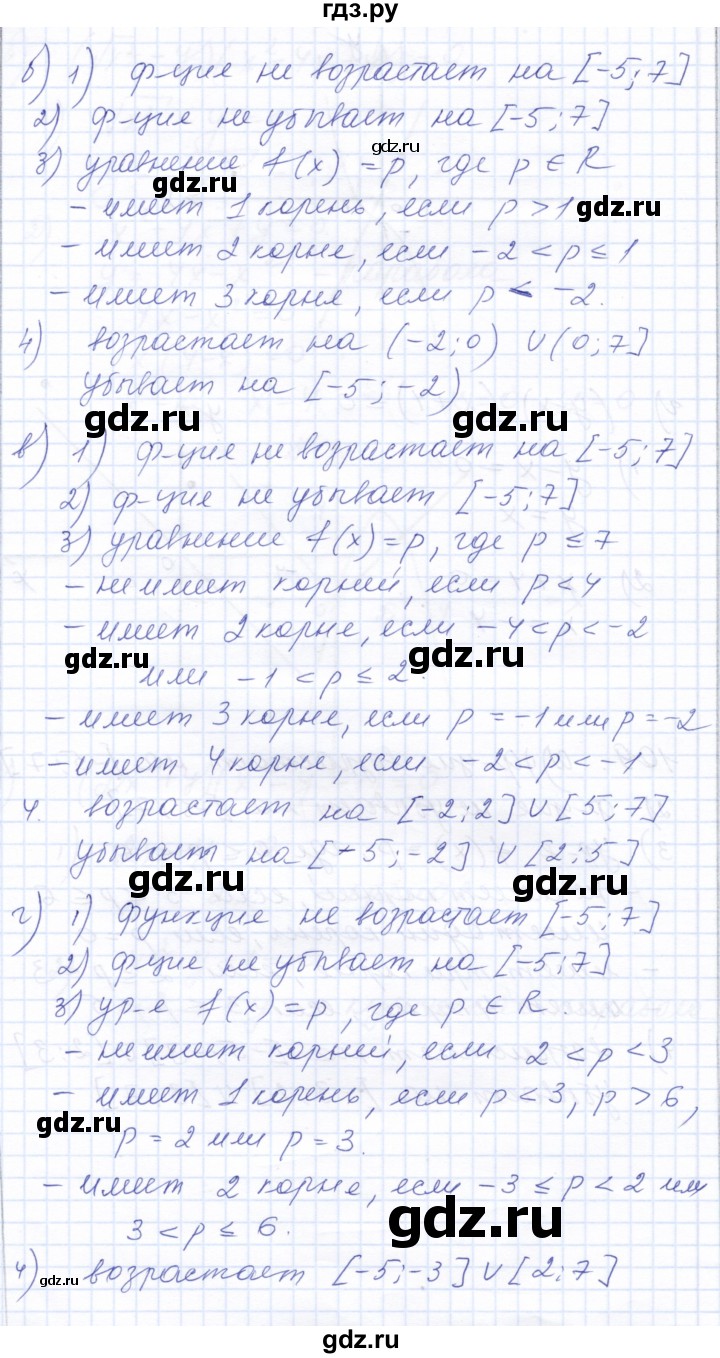 гдз.ру
б) 1) ф-ция не возрастает на [-5; 7]
2) ф-ция не убывает на [-5; 7]
gdz.ru
3) уравнение f(x) = p, где p ∈ R
gdz.ru
- имеет 1 корень, если p > 1
gdz.ru
- имеет 2 корня, если -2 < p ≤ 1
- имеет 3 корня, если p < -2.
4) возрастает на (-2; 0) ∪ (0; 7]
убывает на [-5; -2)
gdz.ru
gdz.ru
в) 1) ф-ция не возрастает на [-5; 7]
2) ф-ция не убывает [-5; 7]
3) уравнение f(x) = p, где p ≤ 7
gdz.ru
- не имеет корней, если p < 4
- имеет 2 корня, если -4 < p < -2
gdz.ru
gdz.ru
или -1 < p ≤ 2.
- имеет 3 корня, если p = -1 или p = -2
- имеет 4 корня, если -2 < p < -1
4. возрастает на [-2; 2] ∪ [5; 7]
убывает на [-5; -2] ∪ [2; 5]
gdz.ru
gdz.ru
г) 1) функция не возрастает [-5; 7]
2) ф-ция не убывает на [-5; 7]
3) ур-е f(x) = p, где p ∈ R.
- не имеет корней, если 2 < p < 3
- имеет 1 корень, если p < 3, p > 6,
gdz.ru
p = 2 или p = 3.
- имеет 2 корня, если -3 ≤ p < 2 или
gdz.ru
3 < p ≤ 6.
4) возрастает [-5; -3] ∪ [2; 7]
gdz.ru
gdz.ru